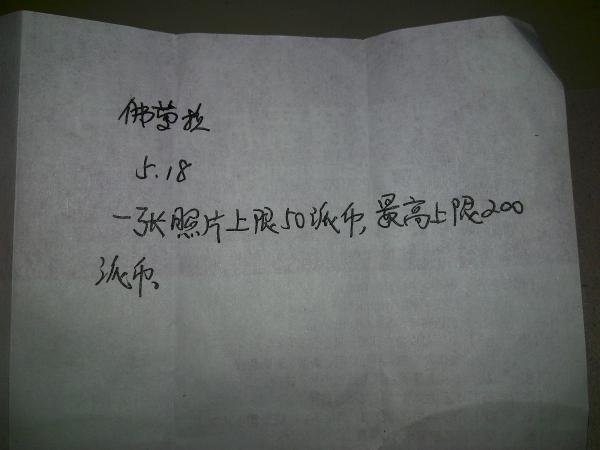 佛萱拉
5.18
一张照片上限50派币,最高上限200
派币。